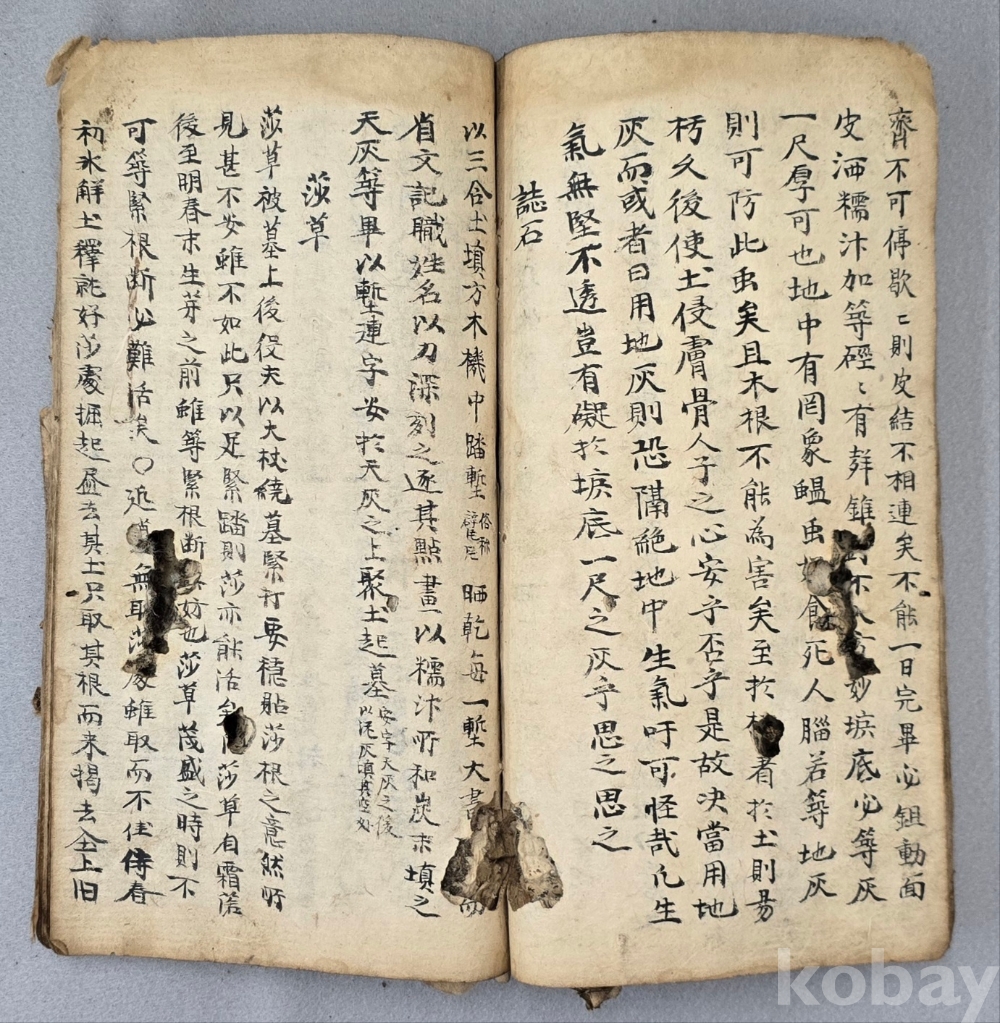 齊不可停歇〻則皮結不相連矣不能一日完畢必鉏動面
皮洒糯汁加築硜〻有聲錐不入方妙壙底必築灰
一尺厚可也地中有罔象蝹虫食死人腦若築地灰
則可防此虫矣且木根不能為害矣至於者於土則易
朽久後使土侵膚骨人子之心安乎否乎是故决當用地
灰而或者曰用地灰則恐隔絶地中生氣吁可怪哉凡生
氣無堅不透豈有礙於壙底一尺之灰乎思之思之
誌石
以三合土填方木機中踏塹俗称辟乭晒乾每一塹大書
省文記職姓名以刀深刻之逐其點畫以糯汁所和炭末填之
天灰等畢以塹連字安於天灰之上聚土起墓安字天灰之後以泥灰填其空处
莎草
莎草被墓上後役夫以大杖繞墓緊打要穩貼莎根之意然所
見甚不安雖不如此只以足緊踏則莎亦能活矣莎草自霜落
後至明春末生芽之前雖等緊根断好也莎草茂盛之時則不
可等緊根断必難活矣〇近無取莎處雖取而不佳待春
初氷解土釋就好莎處掘起盡去其土只取其根而来揭去仝上旧
kobay